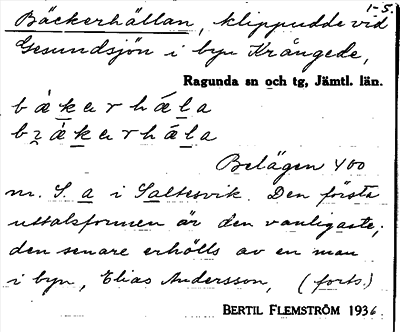 1-5.
Bäckerhällan, klippudde vid
Gesundsjön i byn Krångede,
Ragunda sn och tg, Jämtl. län.
bäkerhäla
bäkerhäla
Belägen 400
m. S. a i Saltesvik. Den första
uttalsformen är den vanligaste;
den senare erhölls av en man
i byn, Elias Andersson, (forts.)
BERTIL FLEMSTRÖM 1936.